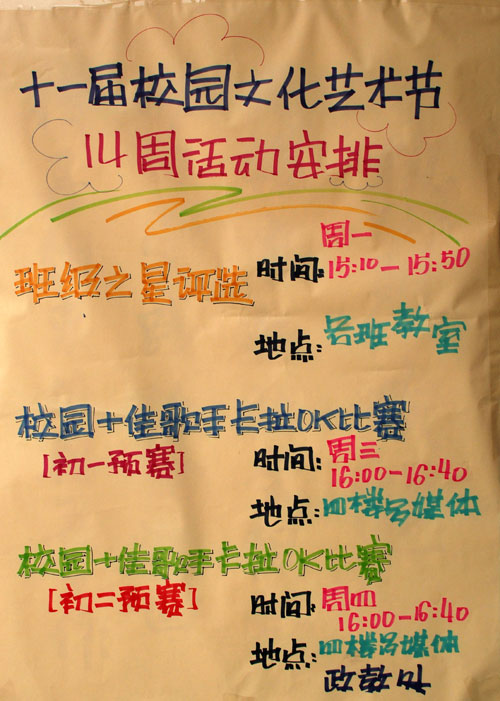 十一届校园文化艺术节
14周活动安排
班级之星评选
时间:周一 15:10—15:50
地点:各班教室
校园十佳歌手卡拉OK比赛
[初一预赛]
时间:周三 16:00—16:40
地点:四楼多媒体
校园十佳歌手卡拉OK比赛
[初二预赛]
时间:周四 16:00—16:40
地点:四楼多媒体
政教处